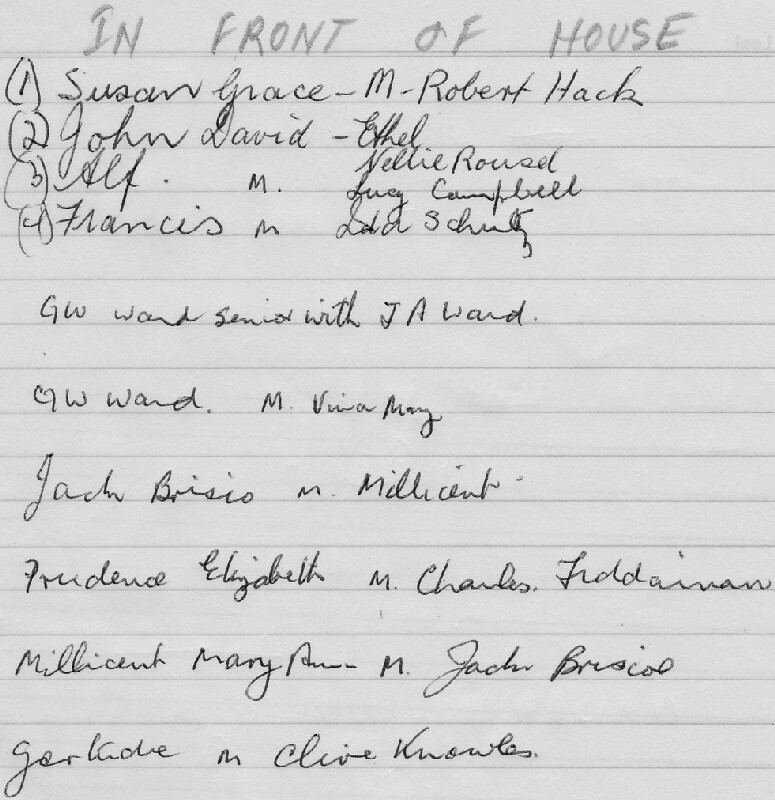 IN FRONT OF HOUSE
(1) Susan Grace - M - Robert Hack
(2) John David - Ethel
Nellie Rousel
(3) Alf. M. Lucy Campbell
(4) Francis M Ida Schultz
GW Ward Senior with J A Ward.
GW Ward. M. Viva May
Jack Brisio M. Millicent
Prudence Elizabeth M. Charles. Fiddaman
Millicent Mary Ann M. Jack Briscoe
Gertrude M Clive Knowles.